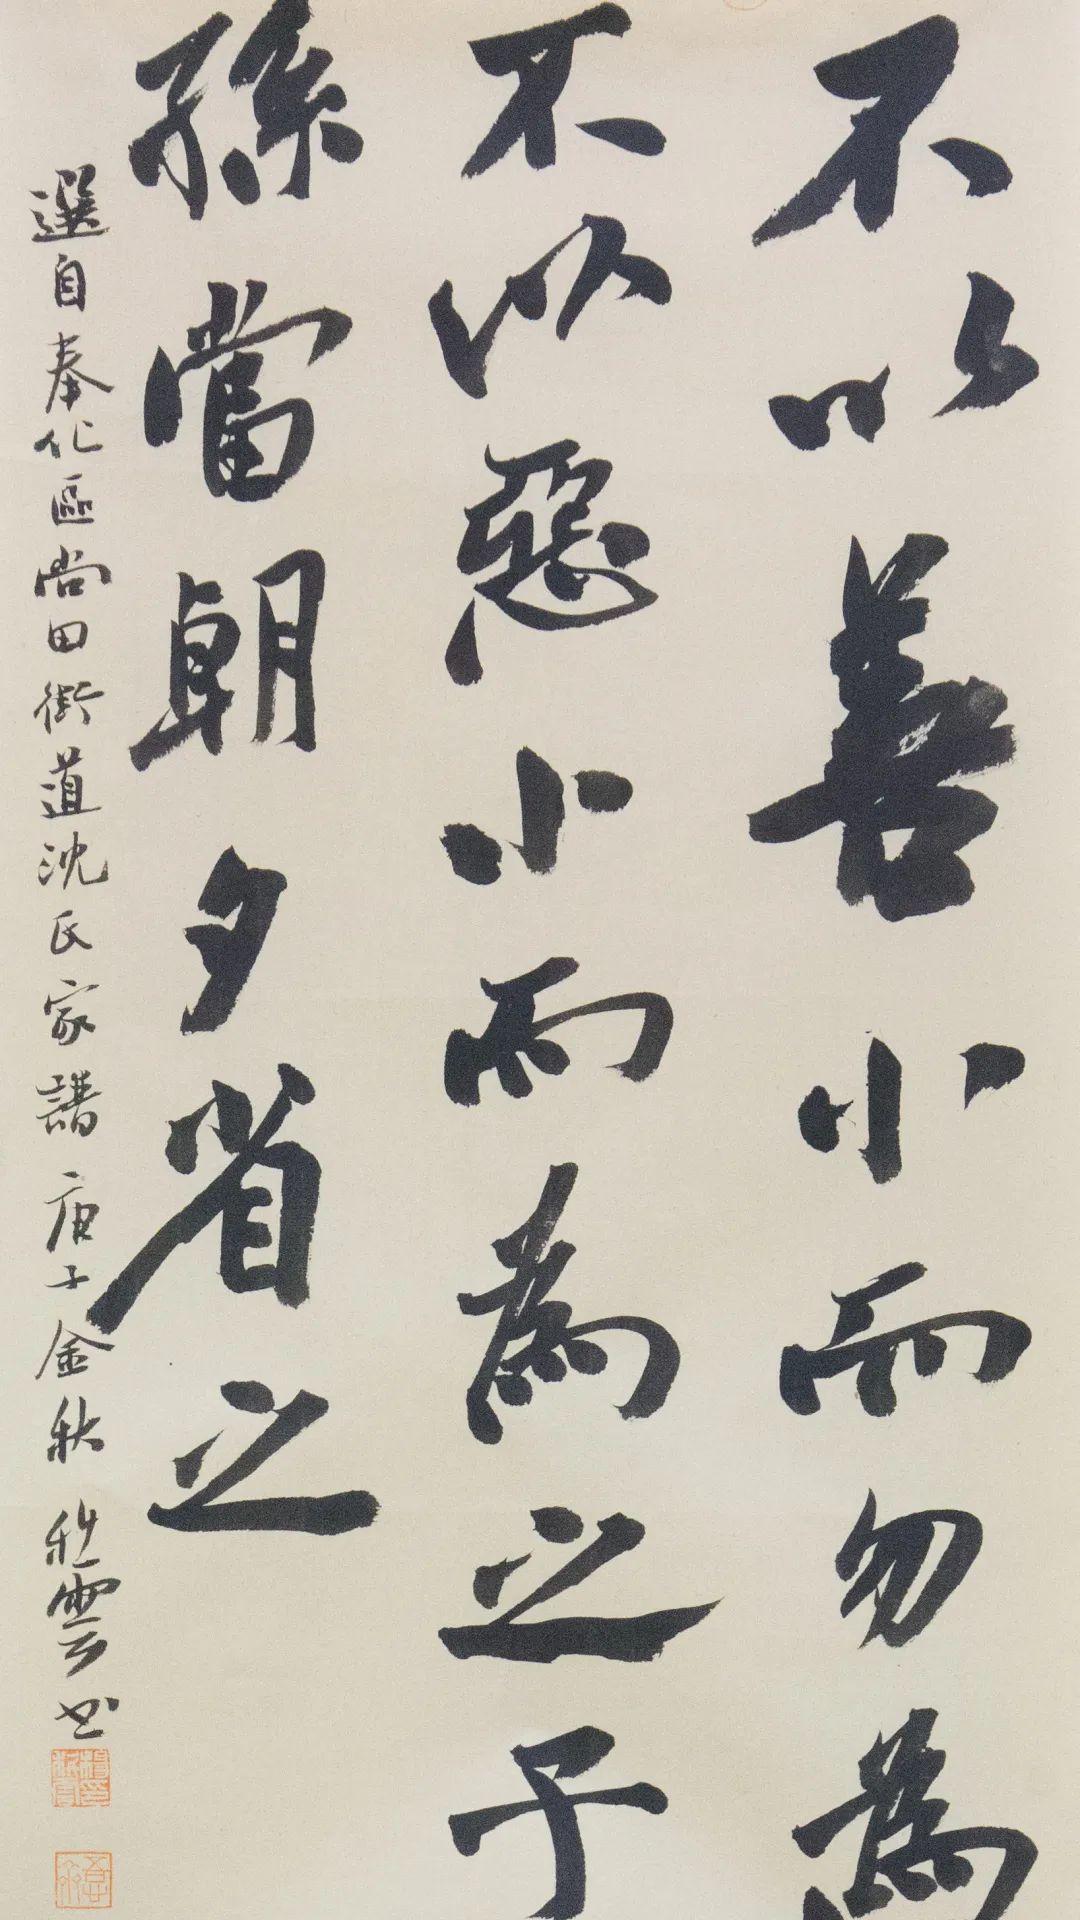 不以善小而勿為
不以惡小而為之子
孫當朝夕省之
選自奉化區尚田街道沈氏家譜庚子金秋秋雲书